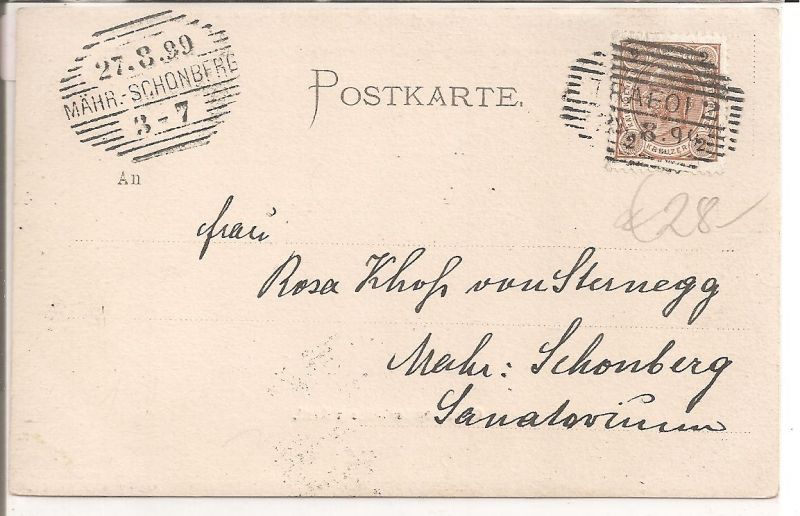 27.8.99
MÄHR.-SCHÖNBERG
3-7
POSTKARTE.
TRAFOI
8.99
2 2
2 2
KREUZER
An
€28-
Frau
Rosa Khoß von Sternegg
Mähr: Schönberg
Sanatorium